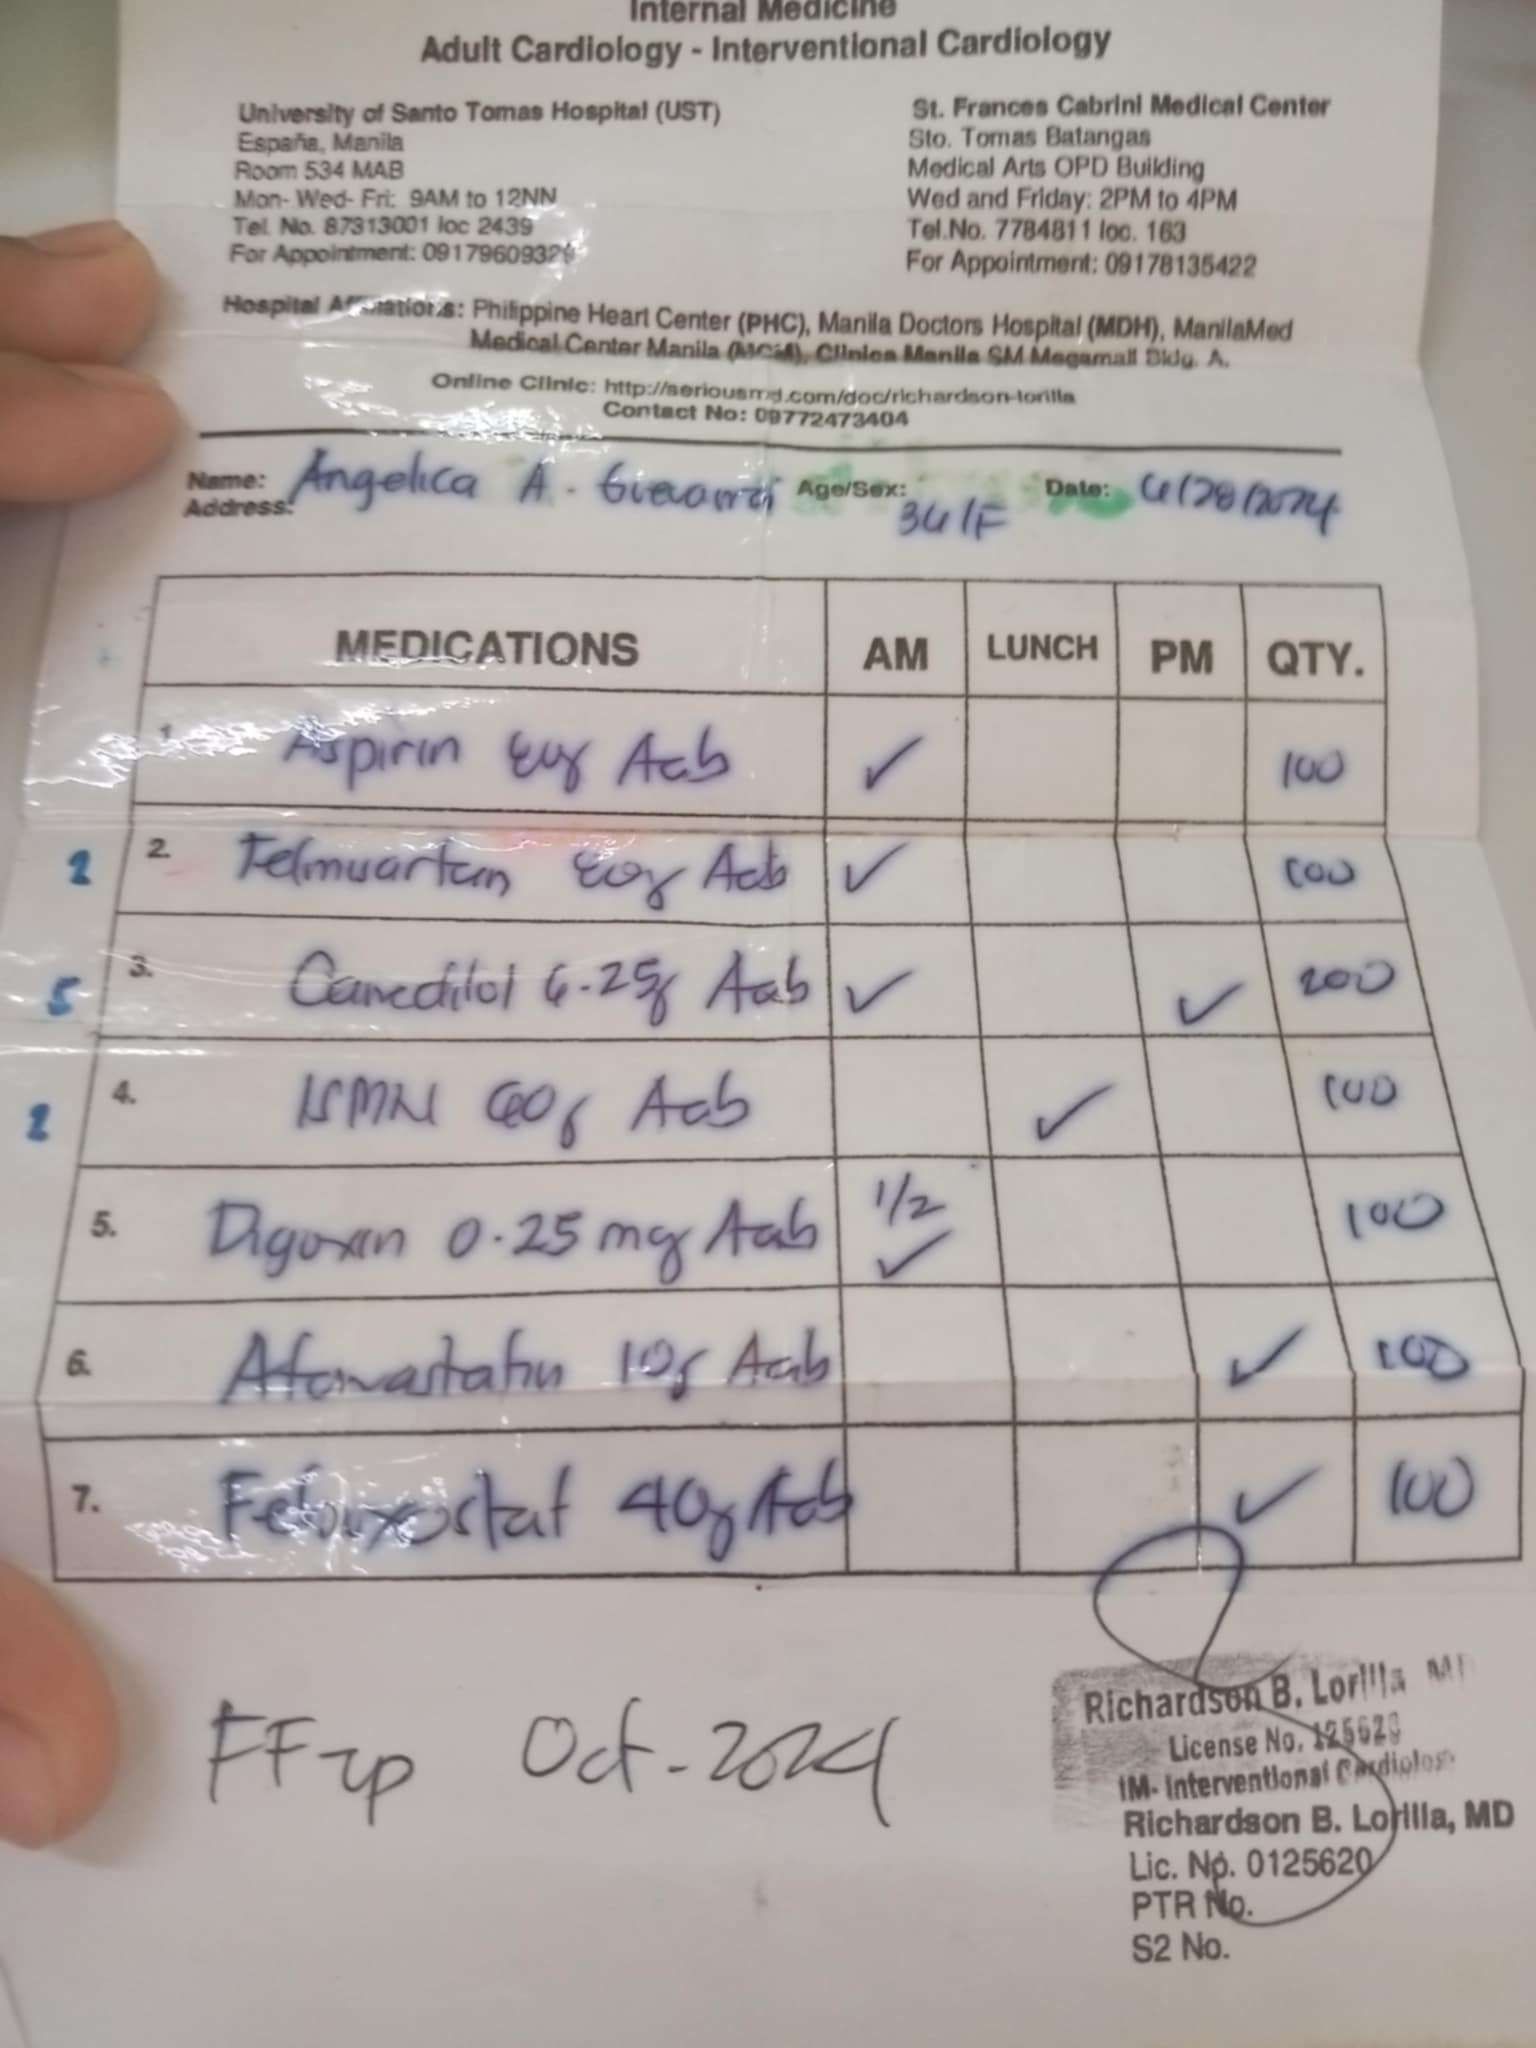 Internal Medicine
Adult Cardiology - Interventional Cardiology
University of Santo Tomas Hospital (UST)
España, Manila
Room 534 MAB
Mon- Wed- Fri: 9AM to 12NN
Tel. No. 87313001 loc 2439
For Appointment:
St. Frances Cabrini Medical Center
Sto. Tomas Batangas
Medical Arts OPD Building
Wed and Friday: 2PM to 4PM
Tel.No. 7784811 loc. 163
For Appointment: 09178135422
Hospital Affiliations: Philippine Heart Center (PHC), Manila Doctors Hospital (MDH), ManilaMed
Medical Center Manila (MCM), Clinica Manila SM Megamall Bldg. A.
Online Clinic: http://seriousmd.com/doc/richardson-lorilla
Contact No: 09772473404
Name: Angelica A. Age/Sex: Date:
Address:
MEDICATIONS AM LUNCH PM QTY.
1. Aspirin Tab ✓ 100
2 2. Telmisartan Tab ✓ 100
5 3. Carvedilol 6.25 Tab ✓ ✓ 200
2 4. ISMN 60 Tab ✓ 100
5. Digoxin 0.25 mg Tab 1/2 ✓ 100
6. Atorvastatin 10 Tab ✓ 100
7. Febuxostat 40 Tab ✓ 100
Oct - 2024
Richardson B. Lorilla MD
License No.
IM- Interventional Cardiology
Richardson B. Lorilla, MD
Lic. No. 0125620
PTR No.
S2 No.